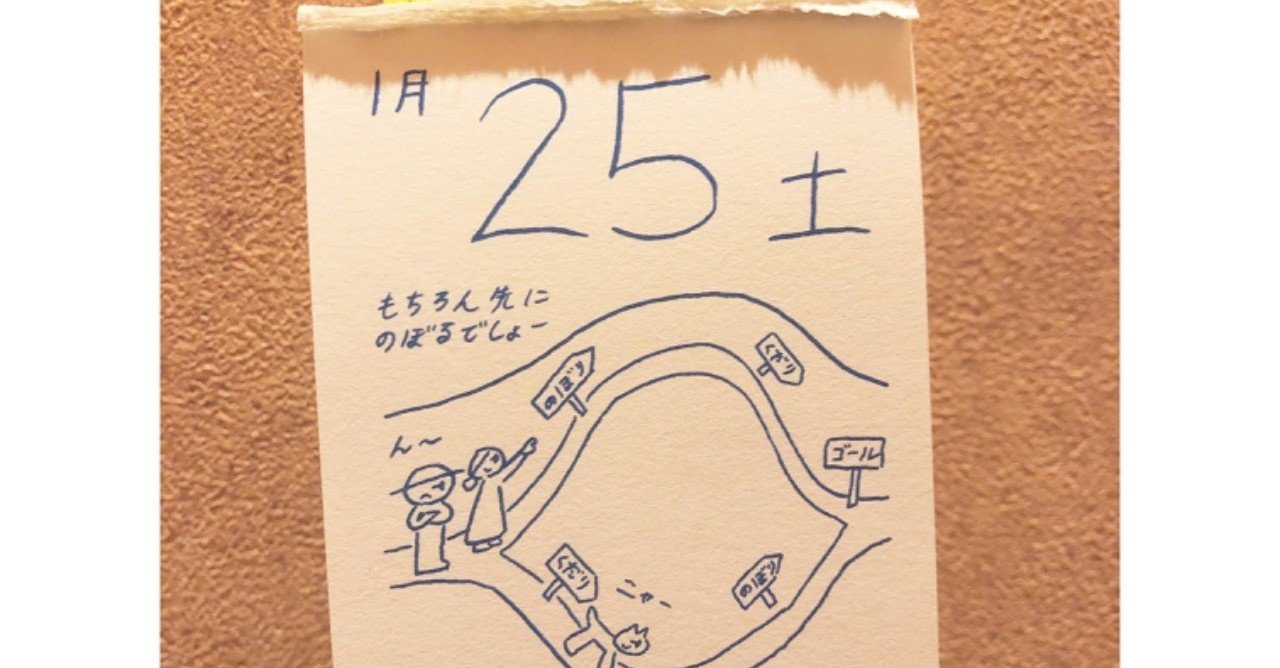 1月 25 土
もちろん先に
のぼるでしょー
のぼり
くだり
ゴール
ん～
くだり
ニャー
のぼり